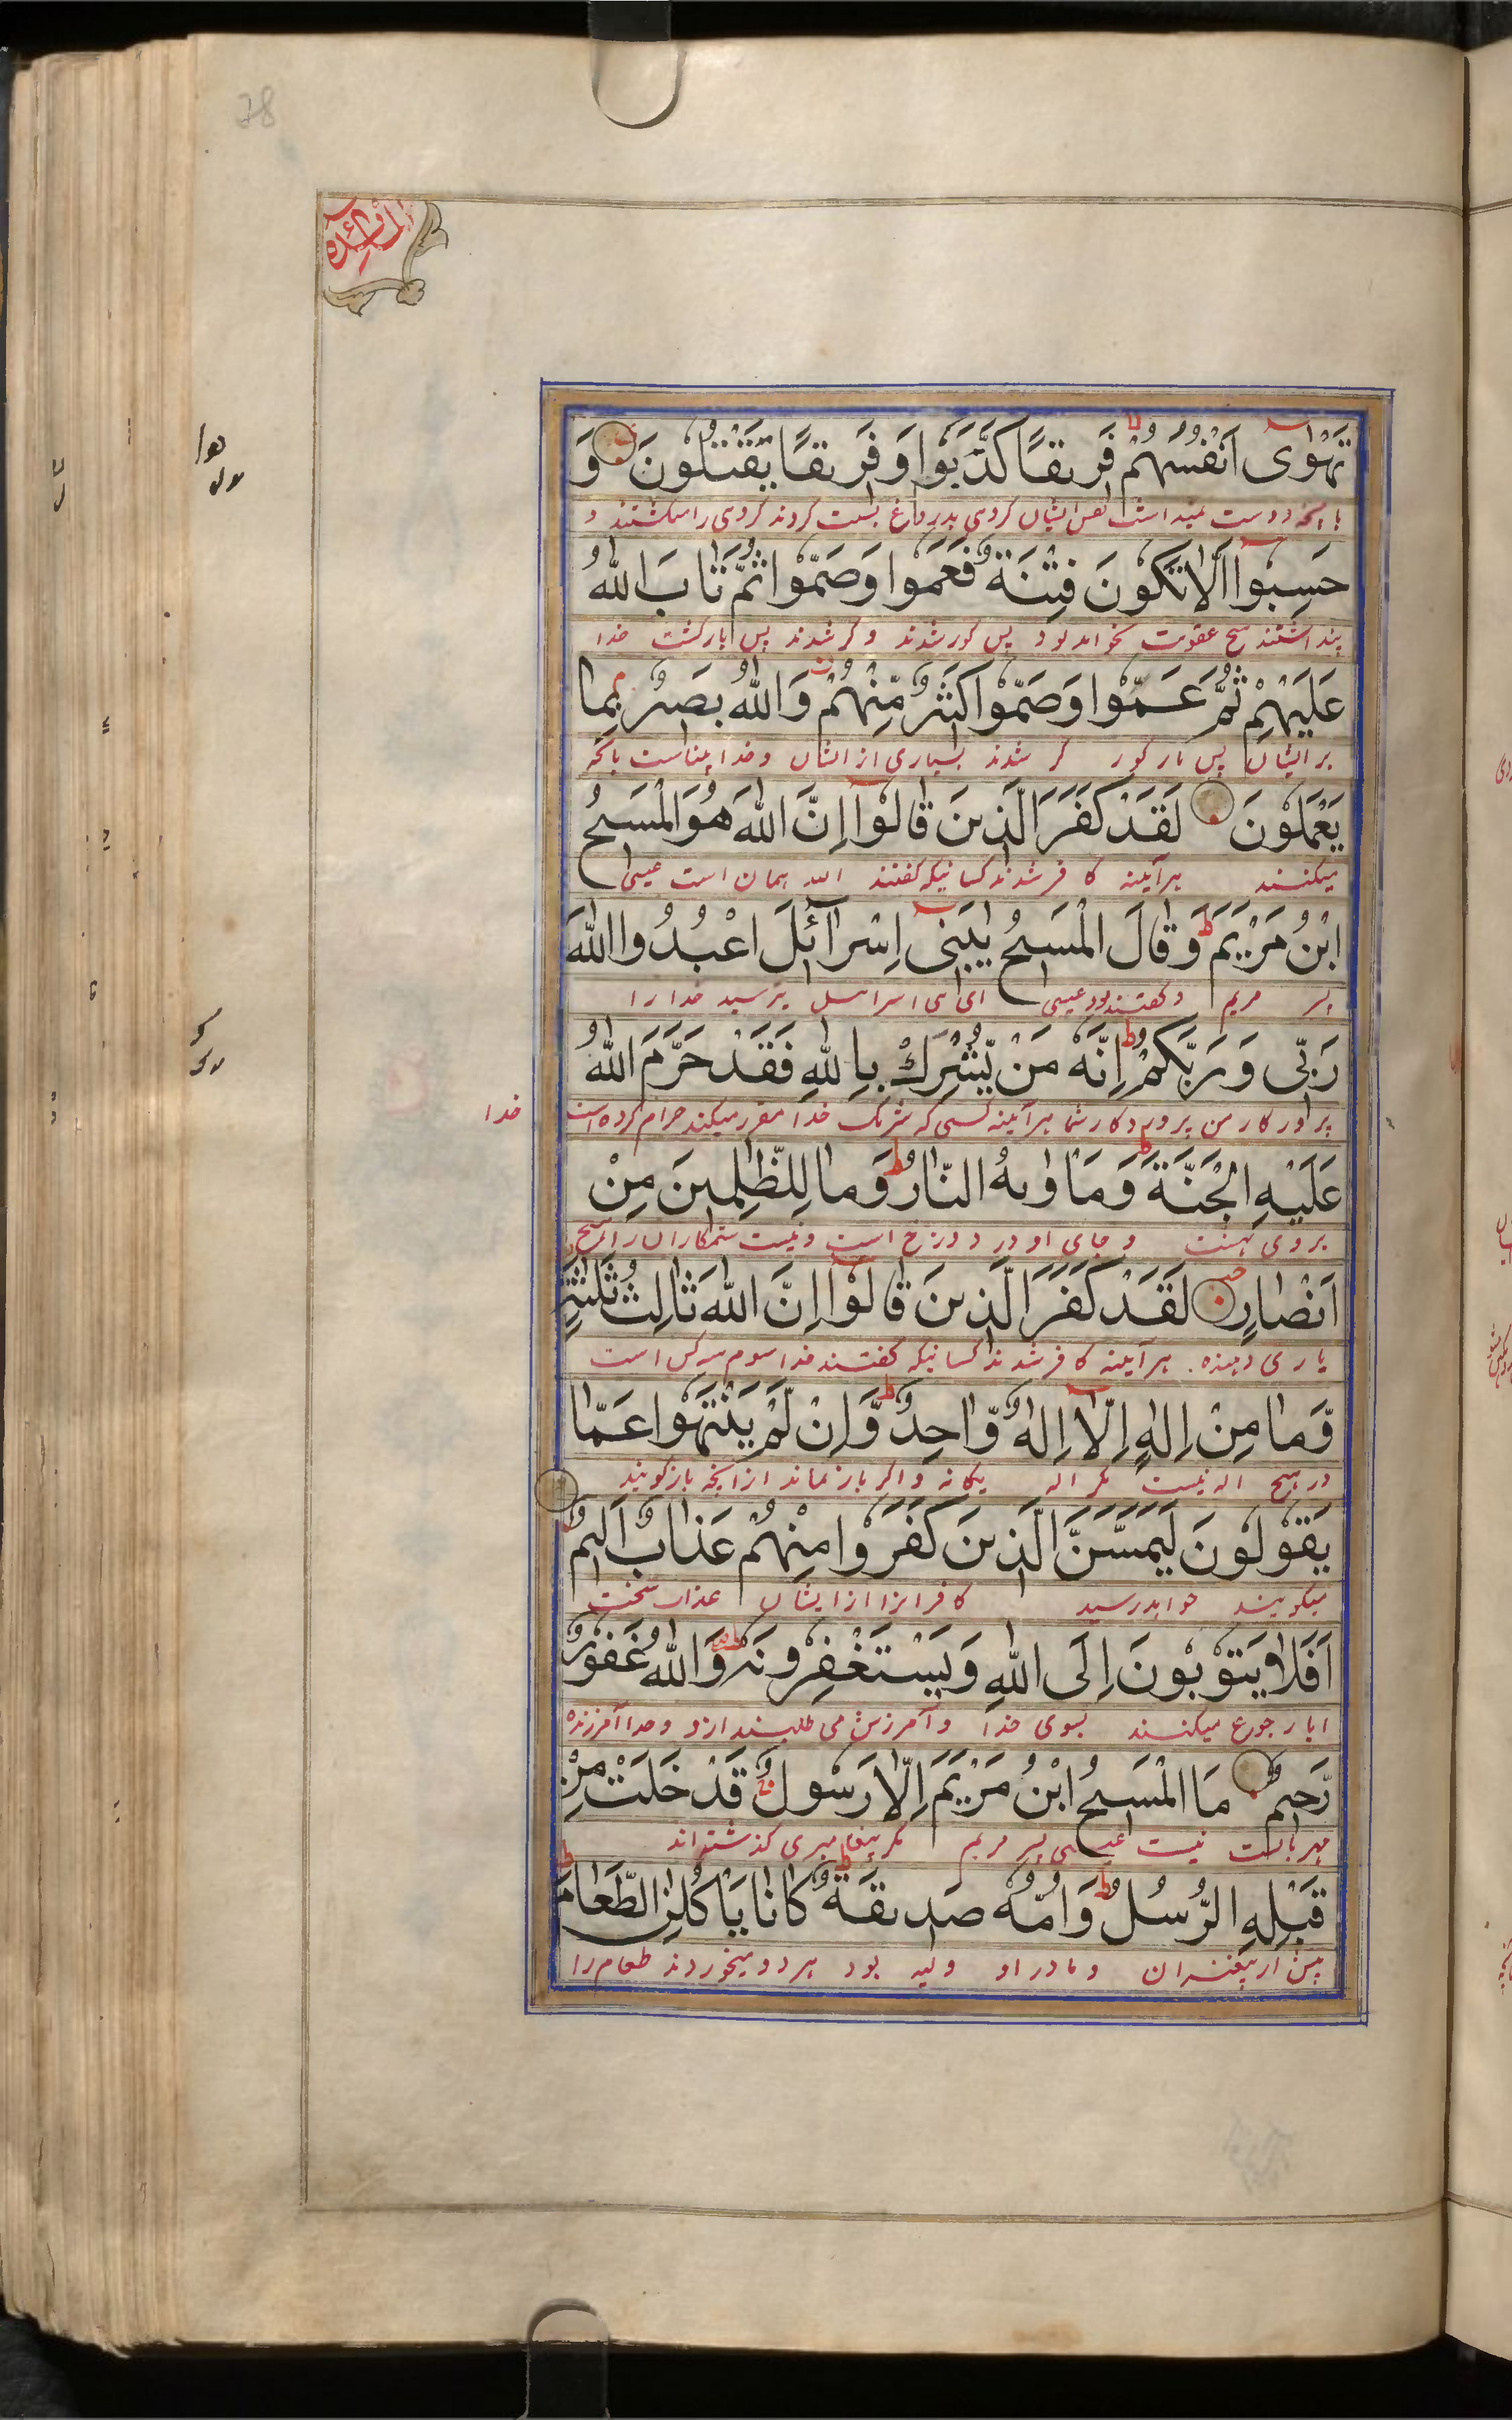 78
المائده
تَهْوٰى اَنْفُسُهُمْ فَرِيقًا كَذَّبُوا وَ فَرِيقًا يَقْتُلُونَ وَ
دوست نمیداشت نفس ایشان گروهی بدروغ نسبت کردند گروهی را میکشتند و
حَسِبُوا اَلَّا تَكُونَ فِتْنَةٌ فَعَمُوا وَصَمُّوا ثُمَّ تَابَ اللهُ
پنداشتند هیچ عقوبت نخواهد بود پس کور شدند و کر شدند پس بازگشت خدا
عَلَيْهِمْ ثُمَّ عَمُّوا وَصَمُّوا كَثِيْرٌ مِّنْهُمْ وَاللهُ بَصِيْرٌ بِمَا
بر ایشان پس باز کور کر شدند بسیاری از ایشان و خدا بیناست بانچه
يَعْمَلُونَ لَقَدْ كَفَرَ الَّذِينَ قَالُوْا اِنَّ اللهَ هُوَ الْمَسِيحُ
میکنند هرآینه کافر شدند کسانیکه گفتند الله همان است عیسی
ابْنُ مَرْيَمَ وَقَالَ الْمَسِيحُ يٰبَنِى اِسْرَآئِلَ اعْبُدُوا اللهَ
پسر مریم و گفته بود عیسی ای بنی اسرائیل بپرسید خدا را
رَبِّى وَ رَبَّكُمْ اِنَّهٗ مَنْ يُّشْرِكْ بِاللهِ فَقَدْ حَرَّمَ اللهُ
پروردگار من پروردگار شما هرآینه کسی که شریک خدا مقرر میکند حرام کرده است خدا
عَلَيْهِ الْجَنَّةَ وَمَاْوٰىهُ النَّارُ وَمَا لِلظّٰلِمِينَ مِنْ
بر وی بهشت و جای او در دوزخ است و نیست ستمکاران را هیچ
اَنْصَارٍ لَقَدْ كَفَرَ الَّذِينَ قَالُوْا اِنَّ اللهَ ثَالِثُ ثَلٰثَةٍ
یاری دهنده هرآینه کافر شدند کسانیکه گفتند خدا سوم سه کس است
وَّمَا مِنْ اِلٰهٍ اِلَّا اِلٰهٌ وَّاحِدٌ وَّاِنْ لَّمْ يَنْتَهُوا عَمَّا
و هیچ اله نیست مگر اله یگانه و اگر باز نماند از انچه باز گویند
يَقُولُونَ لَيَمَسَّنَّ الَّذِينَ كَفَرُوا مِنْهُمْ عَذَابٌ اَلِيمٌ
میگویند خواهد رسید کافرانرا از ایشان عذاب سخت
اَفَلَا يَتُوْبُونَ اِلَى اللهِ وَيَسْتَغْفِرُونَهٗ وَاللهُ غَفُورٌ
ایا رجوع میکنند بسوی خدا و آمرزش می طلبند ازو و خدا آمرزنده
رَّحِيمٌ مَا الْمَسِيحُ ابْنُ مَرْيَمَ اِلَّا رَسُولٌ قَدْ خَلَتْ مِنْ
مهربانست نیست عیسی پسر مریم مگر پیغامبری گذشته اند
قَبْلِهِ الرُّسُلُ وَاُمُّهٗ صِدِيقَةٌ كَانَا يَاْكُلٰنِ الطَّعَامَ
پیش از پیغمبران و مادر او ولیه بود هر دو میخوردند طعام را